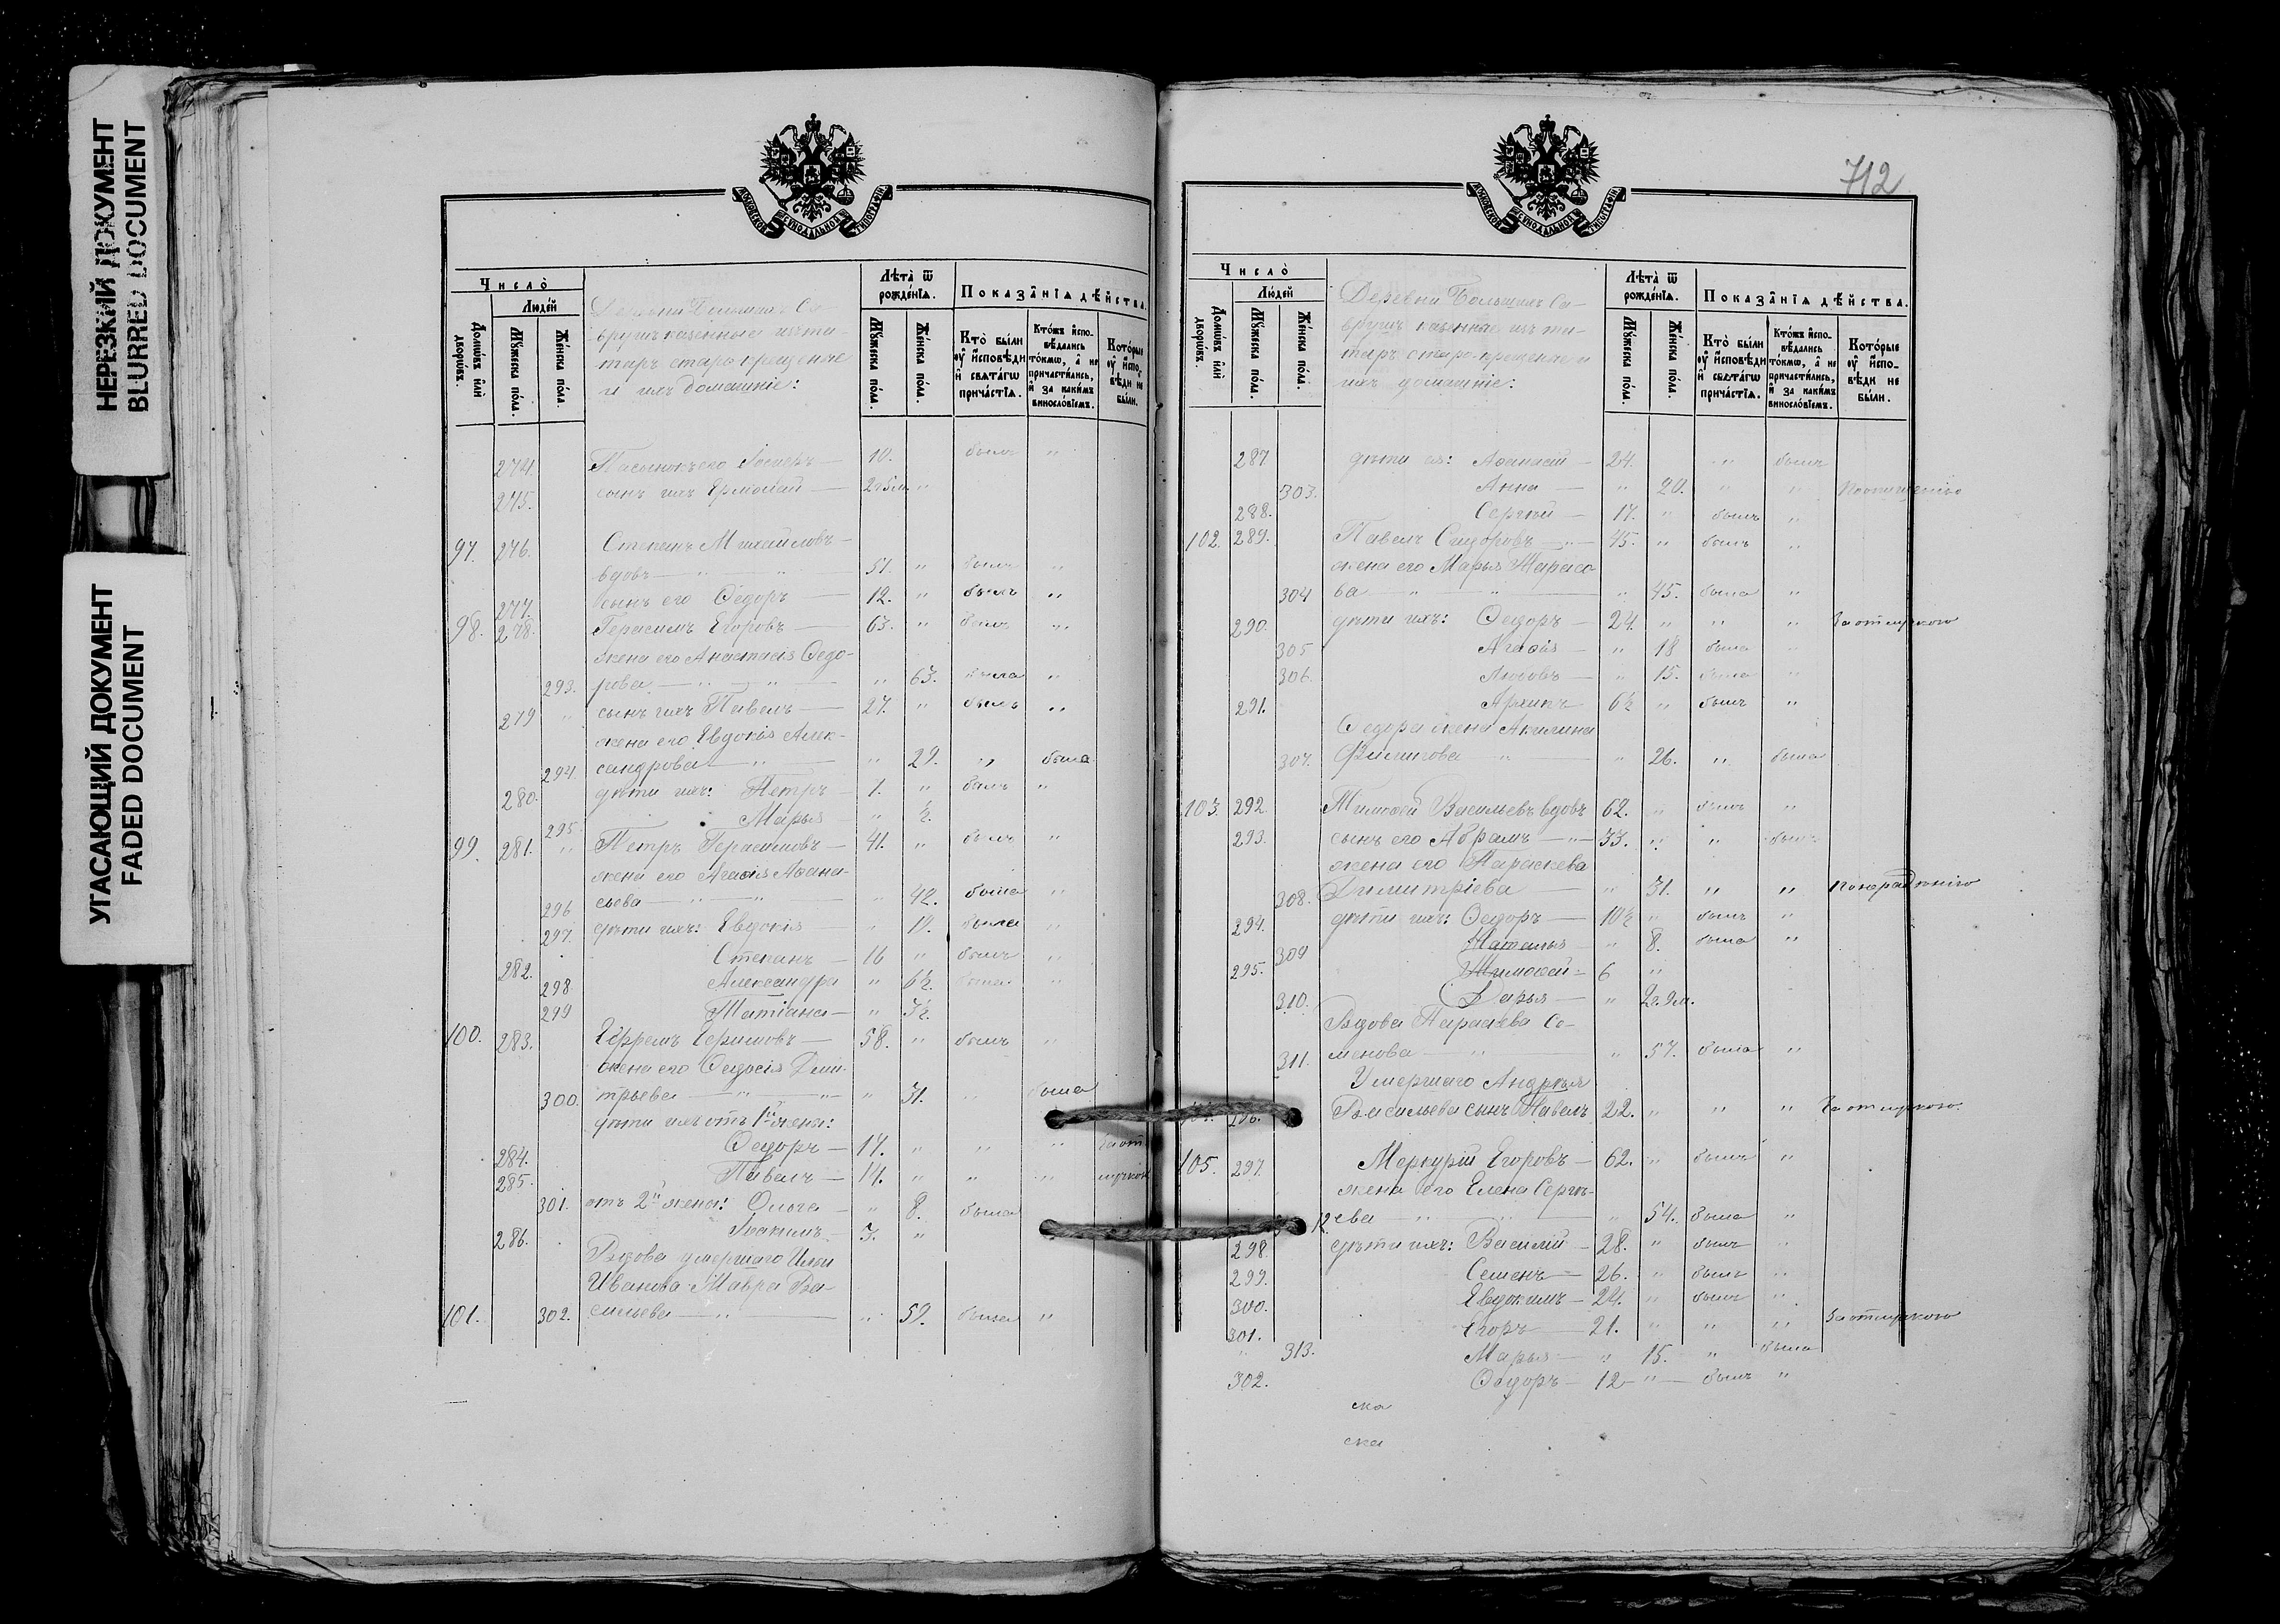 НЕРЕЗКИЙ ДОКУМЕНТ
BLURRED DOCUMENT
УГАСАЮЩИЙ ДОКУМЕНТ
FADED DOCUMENT
МОСКОВСКОЙ СУНОДАЛЬНОЙ ТИПОГРАФІИ
Число̀
Людей
Домѡвъ или дворѡвъ.
Мꙋжеска пола.
Женска пола.
Деревни Большихъ Са-
врушъ казенные изъ та-
таръ старо-крещенные
и ихъ домашніе:
Лѣта ѿ рожденїѧ.
Мꙋжеска пола.
Женска пола.
Показанїѧ дѣйства.
Кто были оу исповѣди и свѧтагѡ причастїѧ.
Ктожъ исповѣдались токмѡ, а не причастились, и за какимъ винословїемъ.
Которые оу исповѣди не были.
274. Пасынокъ его 10. былъ "
275. сынъ ихъ Ермолай "
97. 276. Степанъ Михайловъ
вдовъ 51. " былъ "
277. сынъ его Ѳедоръ 12. " былъ "
98. 278. Герасимъ Егоровъ 63. " былъ "
жена его Анастасія Ѳедо-
293. рова " 63. была "
279 " сынъ ихъ Павелъ 27. " былъ "
жена его Евдокія Алек-
294. сандрова " 29. " была
280. дѣти ихъ: Петръ 1. " былъ "
295. Марья " ½.
99. 281. " Петръ Герасимовъ 41. " былъ "
жена его Агаѳія Аѳана-
296 сьева " 42. была "
297. дѣти ихъ: Евдокія " 19. была "
282. Степанъ 16 " былъ "
298. Александра " 6½. была "
299 Татіана " 3½.
100. 283. Ефремъ 58. " былъ "
жена его Ѳедосія Дми-
300. трьева " 31. " была
дѣти ихъ отъ 1й жены:
284. Ѳедоръ 17. " " " За от-
285. Павелъ 14. " " " лучкою
301. отъ 2й жены: Ольга " 8. была
286. Іоакимъ 3. "
Вдова умершаго Ильи
Иванова Мавра Ва-
101. 302. сильева " 59. была "
712
МОСКОВСКОЙ СУНОДАЛЬНОЙ ТИПОГРАФІИ
Число̀
Людей
Домѡвъ или дворѡвъ.
Мꙋжеска пола.
Женска пола.
Деревни Большихъ Са-
врушъ казенные изъ та-
таръ старо-крещенные и
ихъ домашніе:
Лѣта ѿ рожденїѧ.
Мꙋжеска пола.
Женска пола.
Показанїѧ дѣйства.
Кто были оу исповѣди и свѧтагѡ причастїѧ.
Ктожъ исповѣдались токмѡ, а не причастились, и за какимъ винословїемъ.
Которые оу исповѣди не были.
287. дѣти ея: Аѳанасій 24. " былъ
303. Анна " 20. " "
288. Сергѣй 17. " былъ "
102. 289. Павелъ Сидоровъ 45. " былъ "
жена его Марья Тарасо
304 ва " 45. была "
290. дѣти ихъ: Ѳедоръ 24. " " " За отлучкою
305 Агаѳія " 18 была "
306. Любовь " 15. была "
291. Архипъ 6½ " былъ "
Ѳедора жена Акилина
307. Филипова " 26. " была
103. 292. Тимоѳей Васильевъ вдовъ 62. " былъ "
293. сынъ его Абрамъ 33. " " былъ
жена его Параскева
308. Димитріева " 31. " " По нерадѣнію
294. дѣти ихъ: Ѳедоръ 10½ " былъ "
309 Наталья " 8. была "
295. Тимоѳей 6 "
310. Дарья " 2г. 9м.
Вдова Параскева Се-
311. менова " 57. была "
Умершаго Андрея
Васильева сынъ Павелъ 22. " " " За отлучкою.
105. 297. Меркурій Егоровъ 62. " былъ "
жена его Елена Сергѣ-
ева " 54. была "
298. дѣти ихъ: Василій 28. " былъ "
299. Семенъ 26. " былъ "
300. Евдокимъ 24. " былъ "
301. Егоръ 21. " " " За отлучкою
313. Марья " 15. " была
302. Ѳедоръ 12 " былъ "
ска
ска